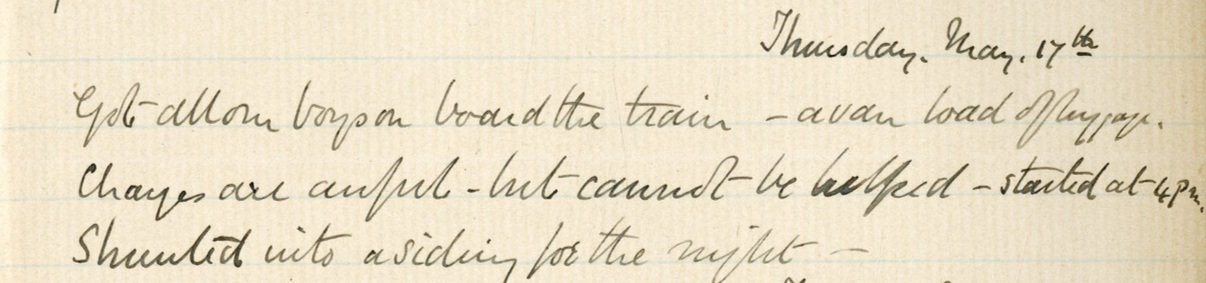 Thursday. May. 17th
Got all our boys on board the train – a van load of luggage.
Charges are awful – but cannot be helped – started at 4 p.m.
Shunted into a siding for the night –